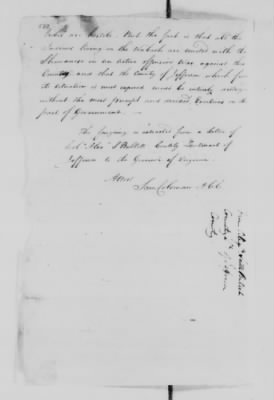 which are hostile. But the fact is that all the
Indians living on the Wabash are united with the
Shawanese in an active offensive War against this
Country and that the County of Jefferson which from
its situation is most exposed must be entirely
without the most prompt and decided Exertions on the
part of Government.
The foregoing is extracted from a letter of
Colo. Alexr. S Bullitt County Lieutenant of
Jefferson to the Governor of Virginia.
Attest
Sam Coleman A.C.C.
County
Jefferson
County